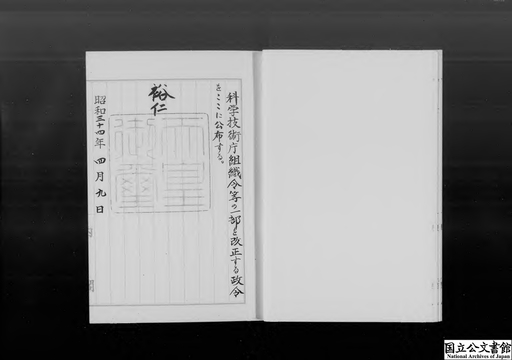 科学技術庁組織令等の一部を改正する政令
をここに公布する。
裕仁
天皇
御璽
昭和三十四年四月九日
内閣
国立公文書館
National Archives of Japan